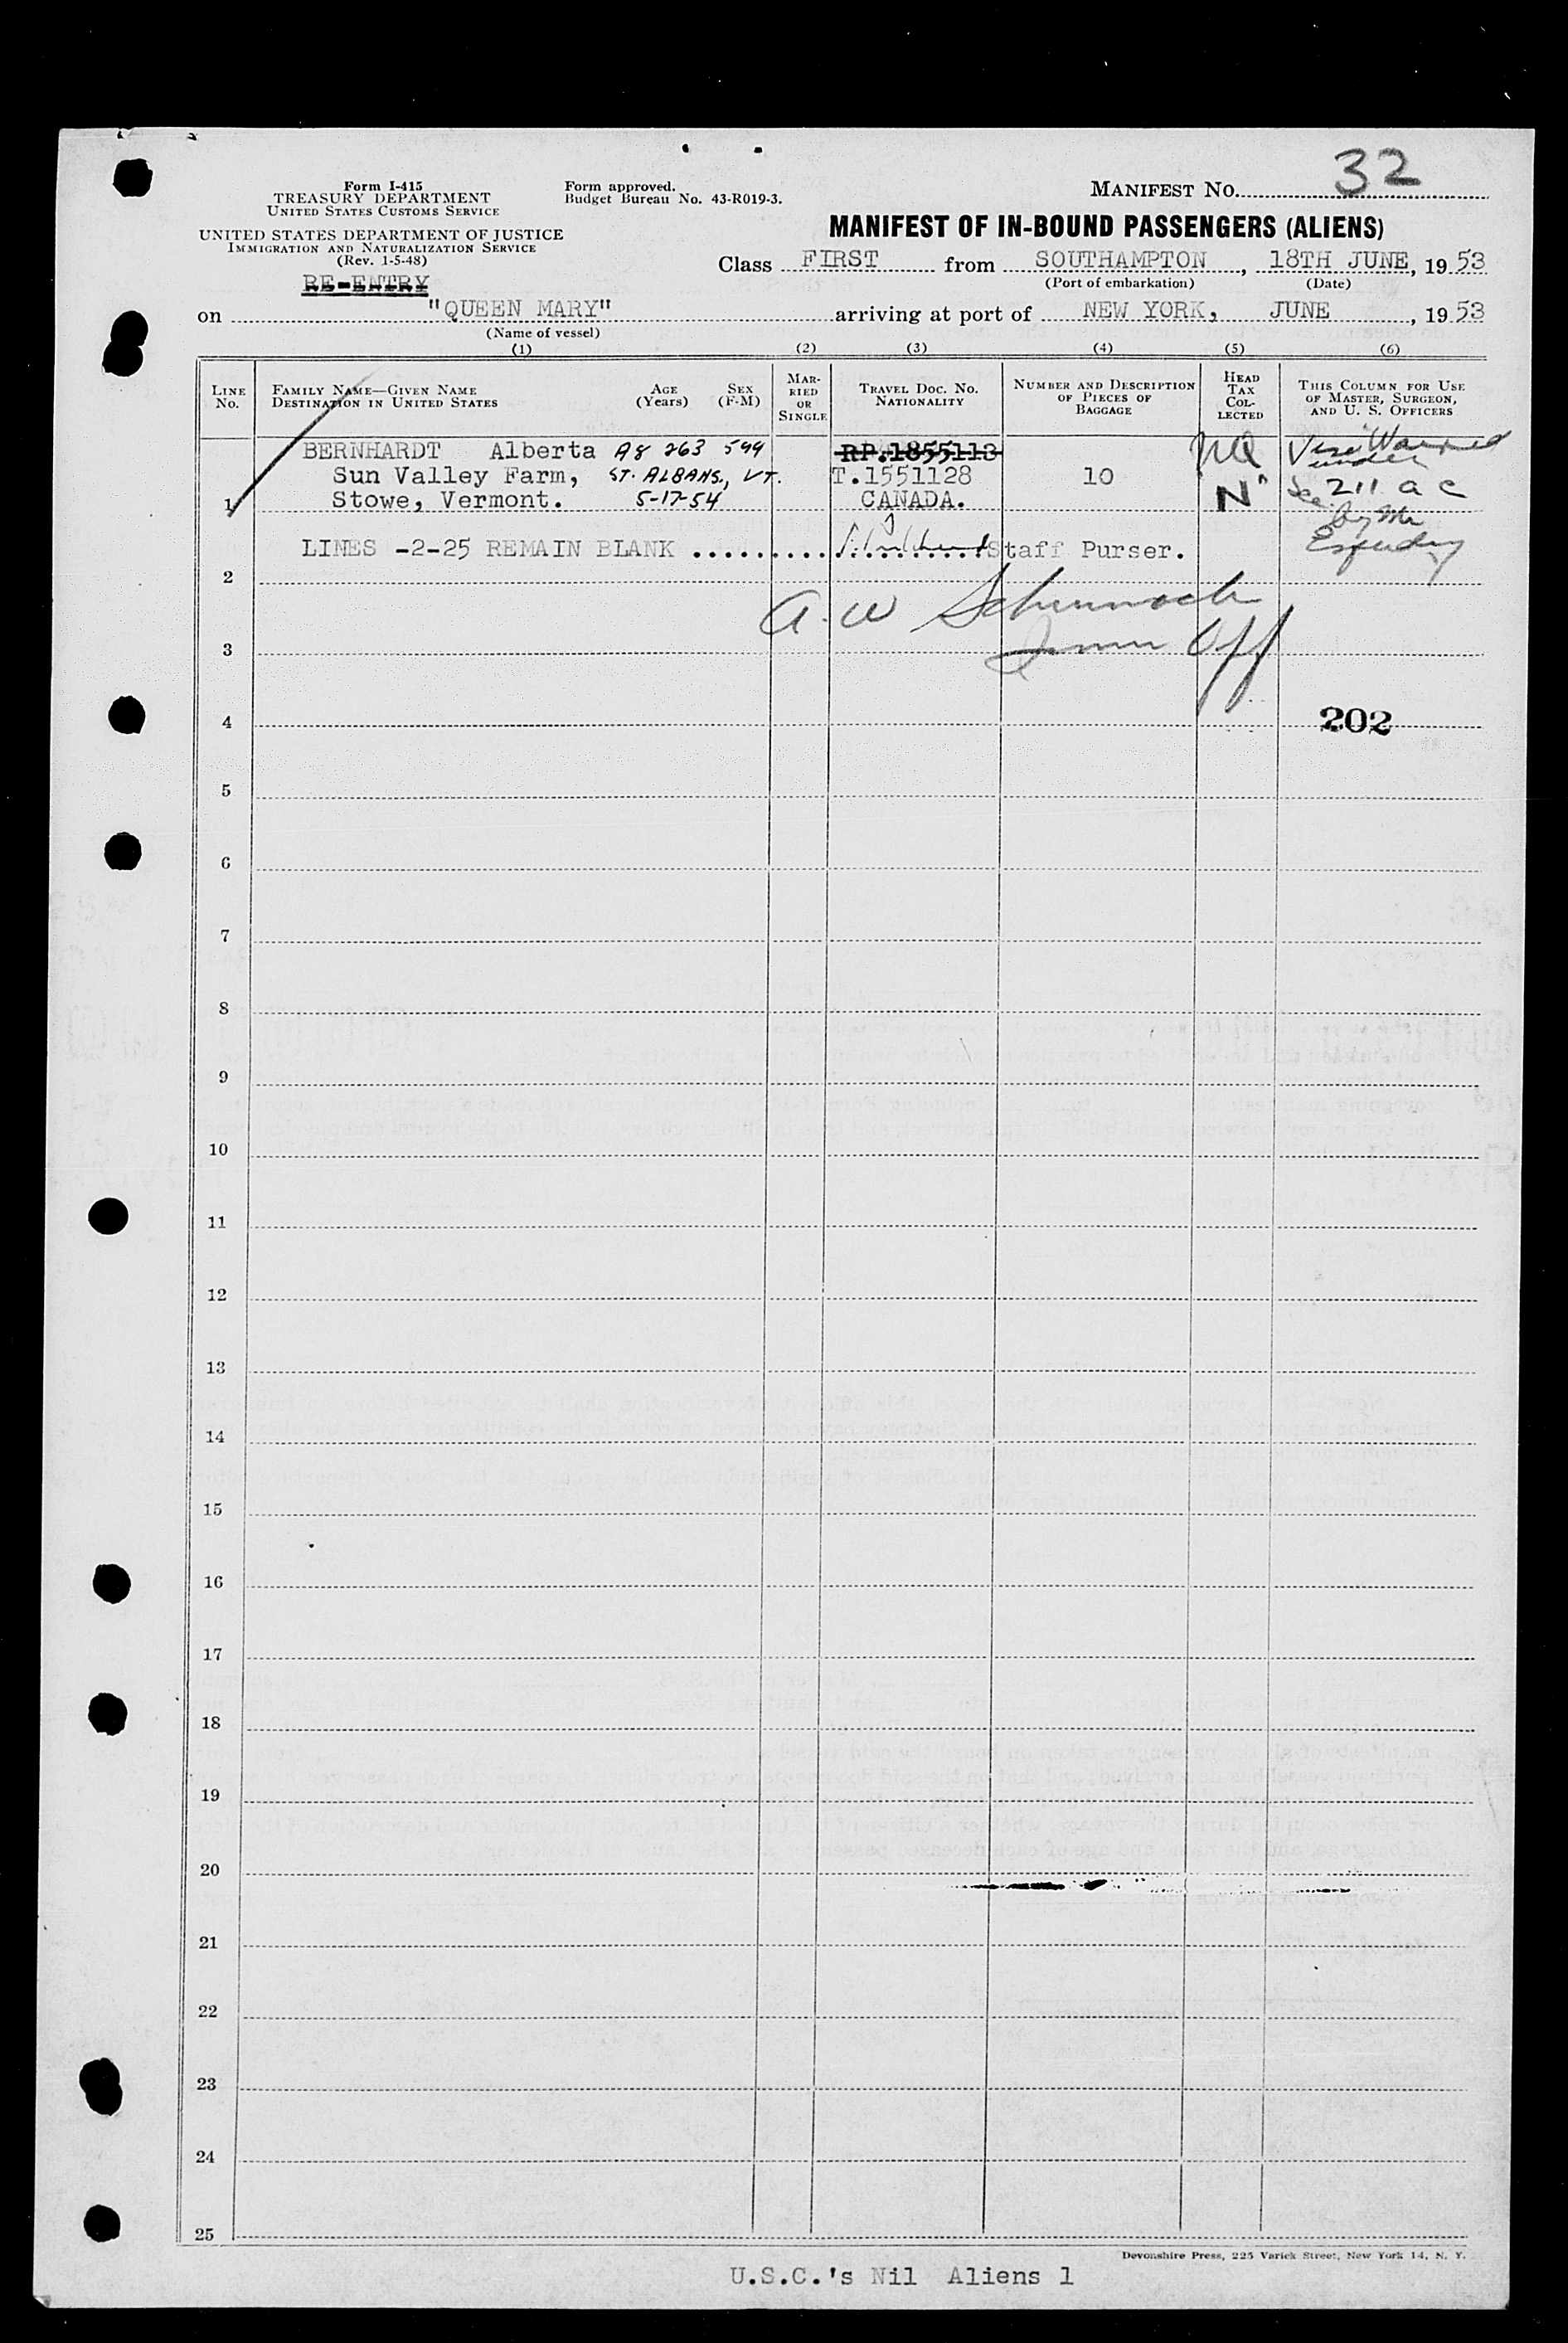 32
Form I-415
TREASURY DEPARTMENT
UNITED STATES CUSTOMS SERVICE
UNITED STATES DEPARTMENT OF JUSTICE
IMMIGRATION AND NATURALIZATION SERVICE
(Rev. 1-5-48)
Form approved.
Budget Bureau No. 43-R019-3.
MANIFEST NO.
MANIFEST OF IN-BOUND PASSENGERS (ALIENS)
Class FIRST from SOUTHAMPTON, 18TH JUNE, 1953
(Port of embarkation) (Date)
RE-ENTRY
on "QUEEN MARY" arriving at port of NEW YORK, JUNE, 1953
(Name of vessel)
(1) (2) (3) (4) (5) (6)
LINE No.
FAMILY NAME—GIVEN NAME
DESTINATION IN UNITED STATES
AGE (Years)
SEX (F-M)
MAR-
RIED
OR
SINGLE
TRAVEL DOC. NO.
NATIONALITY
NUMBER AND DESCRIPTION
OF PIECES OF
BAGGAGE
HEAD
TAX
COL-
LECTED
THIS COLUMN FOR USE
OF MASTER, SURGEON,
AND U. S. OFFICERS
BERNHARDT Alberta A8 263 599 RP.1855113
Sun Valley Farm, ST. ALBANS, VT. T.1551128 10 under
1 Stowe, Vermont. 5-17-54 CANADA. N 211 a c
LINES -2-25 REMAIN BLANK .................... Staff Purser.
2
A. W
3
Off
4 202
5
6
7
8
9
10
11
12
13
14
15
16
17
18
19
20
21
22
23
24
25
Devonshire Press, 225 Varick Street, New York 14, N. Y.
U.S.C.'s Nil Aliens 1